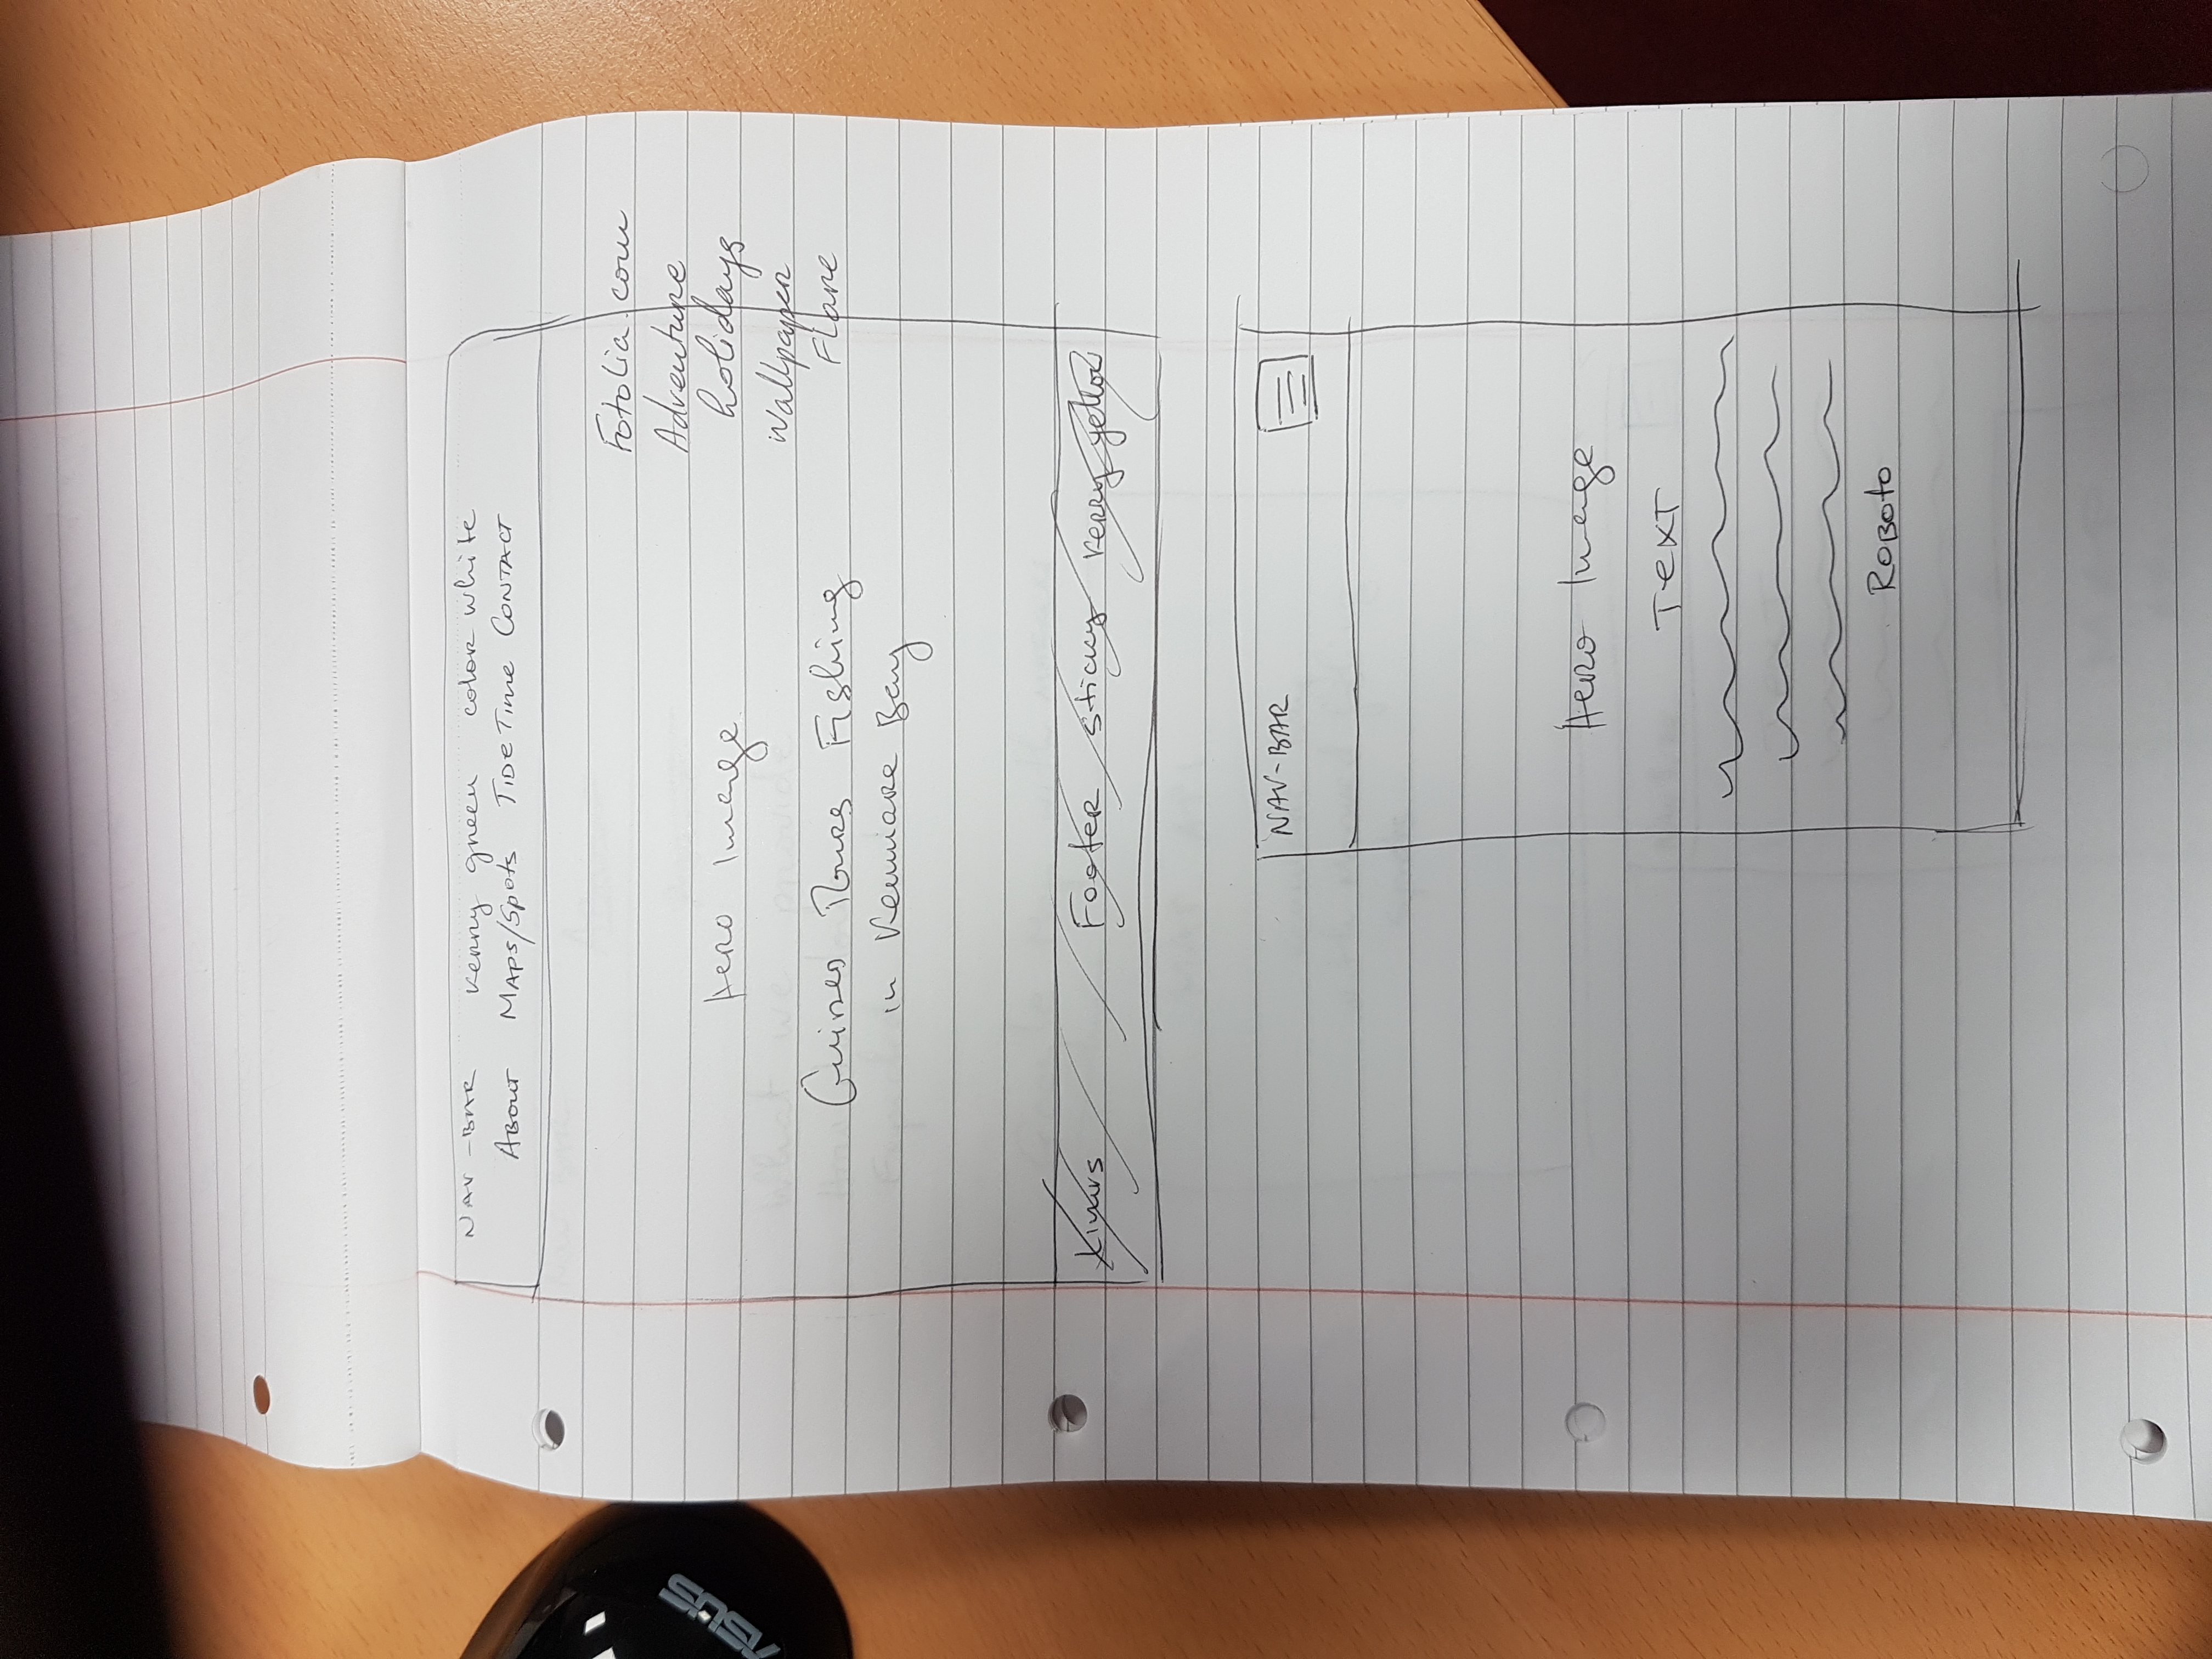 NAV-BAR Kerry green color white
ABOUT MAPS/Spots TIDE TIME CONTACT
Fotolia.com
Adventure
holidays
Wallpaper
Flare
Hero Image
Tours Fishing
in Kenmare Bay
Footer sticky Kerry yellow
NAV-BAR
Hero Image
TEXT
ROBOTO
ASUS